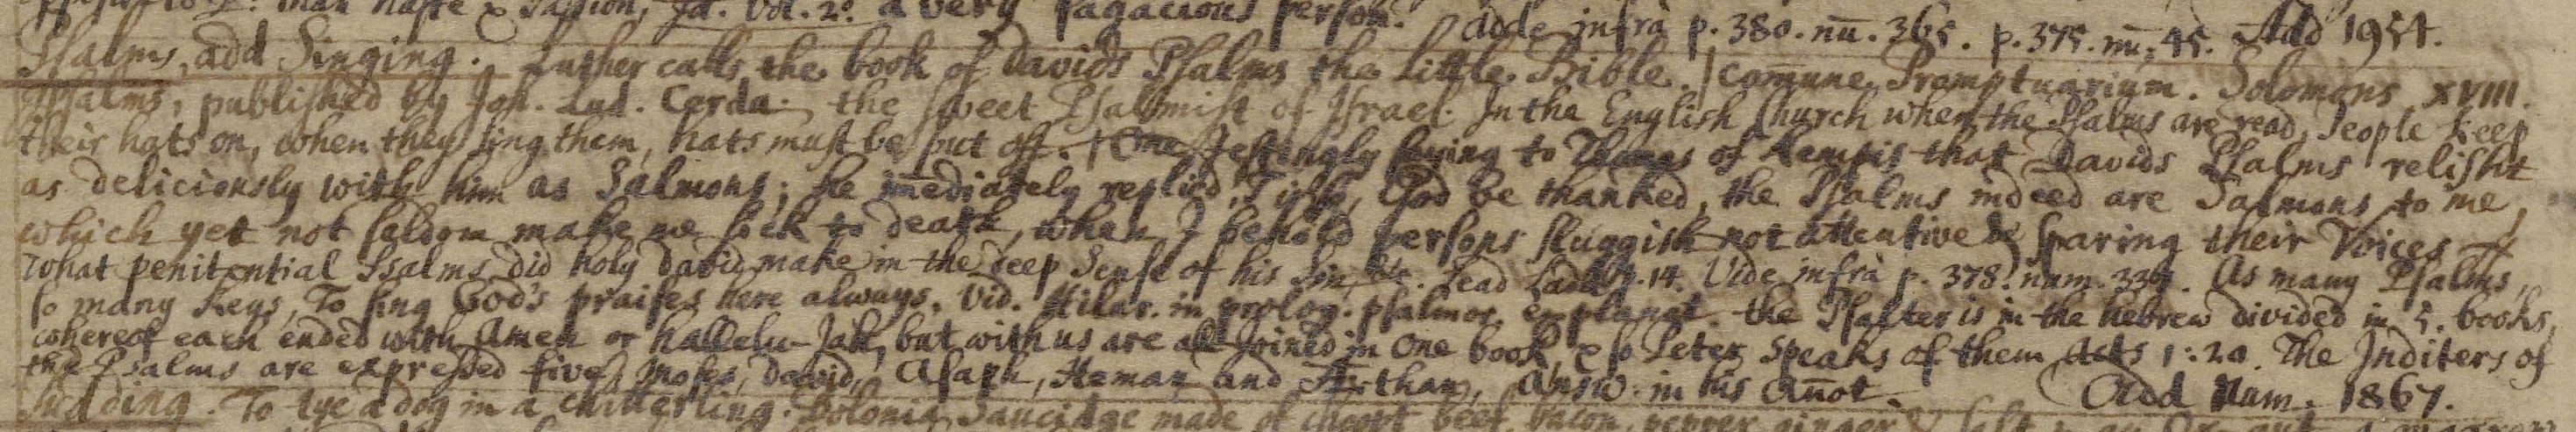 than haste & Passion, Id. Vol. 2. a very sagacious person. adde infrà p. 380. nū. 365. p. 375. nu. 45. Add 1954.
Psalms, add Singing. Luther calls the book of Davids Psalms the little Bible. | Com̄une Promptuarium. Solomons XVIII.
Psalms, published by Joh. Lud. Cerda. the sweet Psalmist of Israel. In the English Church when the Psalms are read, People keep
their hats on, when they sing them, hats must be put off. | One Jestingly saying to Thomas of Kempis that Davids Psalms relisht
as deliciously with him as Salmons; he im̄ediately replied, God be thanked, the Psalms indeed are Salmons to me,
which yet not seldom make me sick to death, when I behold persons sluggish not attentive & sparing their Voices
What penitential Psalms did holy David make in the deep Sense of his Sin, Vide infrà p. 378. num. 339. As many Psalms,
so many Keys, To sing God's praises here always. Vid. Hilar. in prolog. psalmor. explanat. the Psalter is in the hebrew divided in 5. books,
whereof each ended with Amen or hallelu-Jah, but with us are all Joined in One book, & so Peter speaks of them Acts 1:20. The Inditers of
the Psalms are expressed five, Moses, David, Asaph, Heman and Ethan, Ainsw. in his An̄ot. Add Num. 1867.
Pudding. To tye a dog in a chitterling. Bolonia Saucidge made of chopt beef, bacon, pepper, ginger & salt